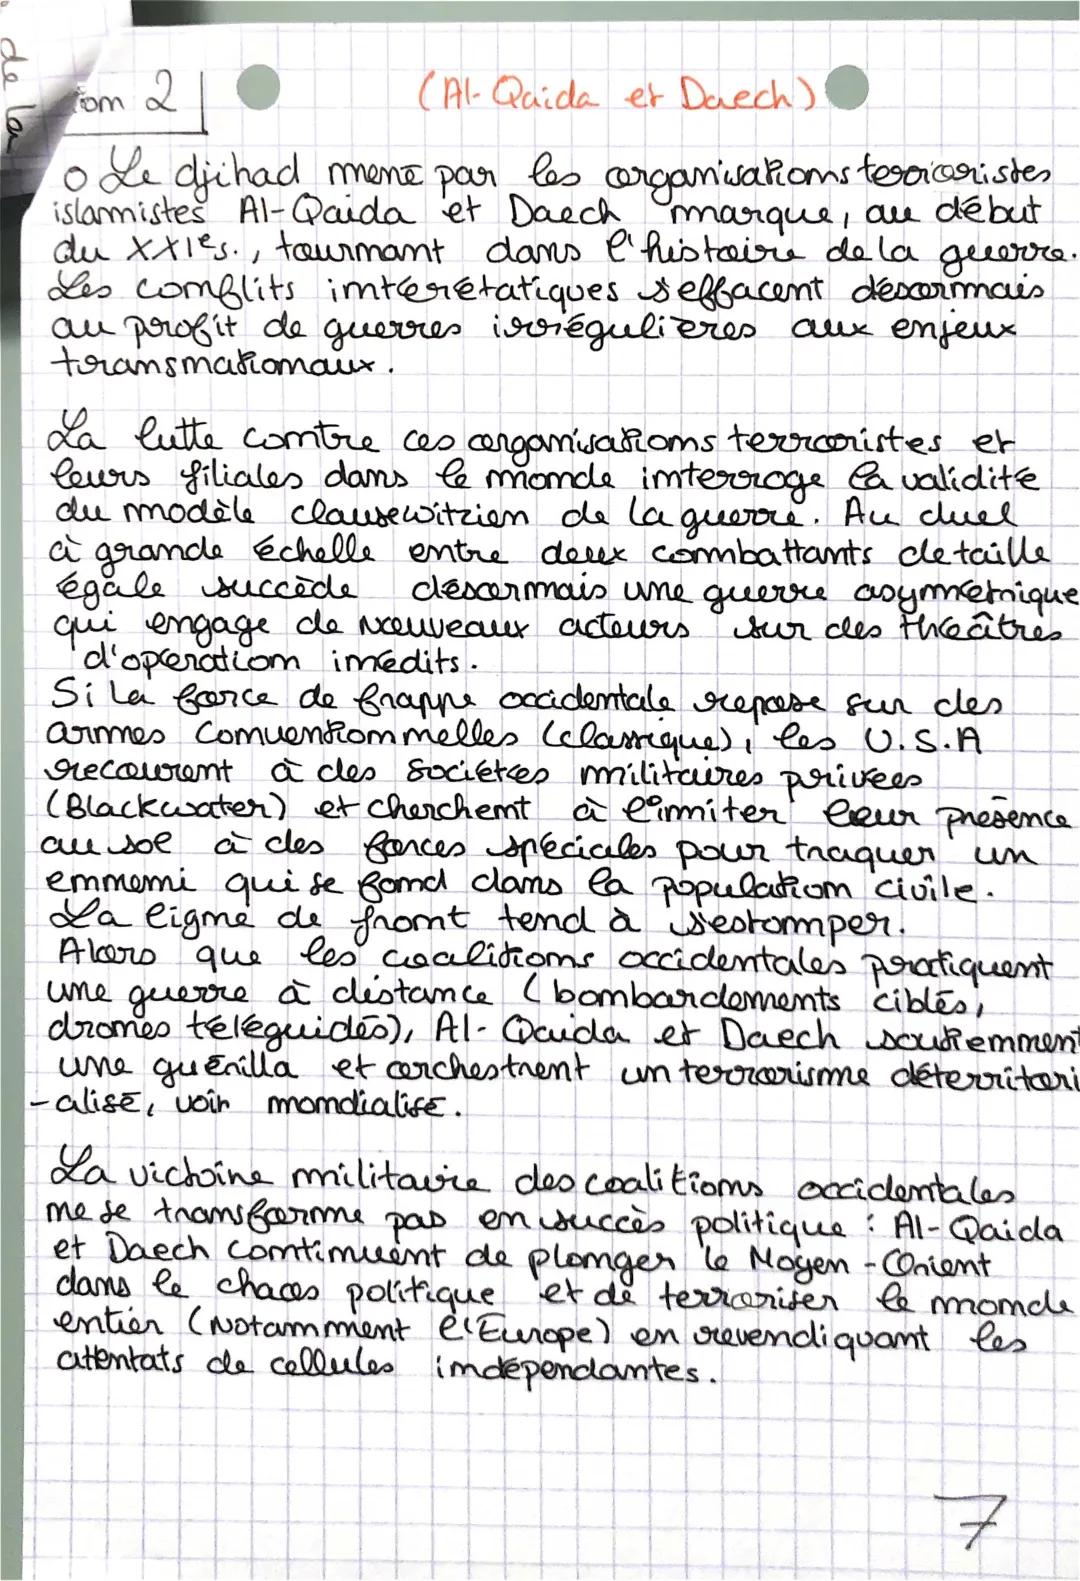 de la
ion 2
(Al-Qaida et Daech)
o Le djihad mené par les organisations terroristes
islamistes Al-Qaida et Daech marque, au début
du XXIes., tournant dans l'histoire de la guerre.
Les conflits interétatiques s'effacent désormais
au profit de guerres irrégulières aux enjeux
transnationaux.
La lutte contre ces organisations terroristes et
leurs filiales dans le monde interroge la validité
du modèle clausewitzien de la guerre. Au duel
à grande échelle entre deux combattants de taille
égale succède désormais une guerre asymétrique
qui engage de nouveaux acteurs sur des théâtres
d'opération inédits.
Si la force de frappe occidentale repose sur des
armes conventionnelles (classique), les U.S.A
recourent à des sociétés militaires privées
(Blackwater) et cherchent à limiter leur présence
au sol à des forces spéciales pour traquer un
ennemi qui se fond dans la population civile.
La ligne de front tend à s'estomper.
Alors que les coalitions occidentales pratiquent
une guerre à distance (bombardements ciblés,
drones téléguidés), Al-Qaida et Daech soutiennent
une guérilla et orchestrent un terrorisme déterritori
-alisé, voir mondialisé.
La victoire militaire des coalitions occidentales
ne se transforme pas en succès politique : Al-Qaida
et Daech continuent de plonger le Moyen-Orient
dans le chaos politique et de terroriser le monde
entier (Notamment l'Europe) en revendiquant les
attentats de cellules indépendantes.
7